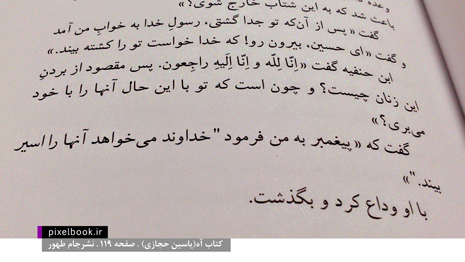 باعث شد که به این شتاب خارج شوی؟»
گفت «پس از آن‌که تو جدا گشتی، رسولِ خدا به خوابِ من آمد
و گفت «ای حسین، بیرون رو! که خدا خواست تو را کشته بیند.»
ابن حنفیه گفت «اِنّا لِلّه و اِنّا اِلَیهِ راجعون. پس مقصود از بردنِ
این زنان چیست؟ و چون است که تو با این حال آنها را با خود
می‌بری؟»
گفت که «پیغمبر به من فرمود "خداوند می‌خواهد آنها را اسیر
بیند."»
با او وداع کرد و بگذشت.
pixelbook.ir
کتاب آه(یاسین حجازی) . صفحه ۱۱۹ . نشرجام طهور